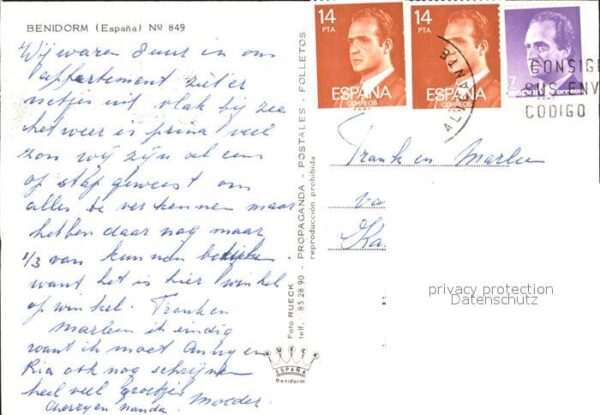 BENIDORM (España) Nº 849
Wij waren duur in ons
appartement ziet er
netjes uit vlak bij zee
het weer is prima veel
zon wij zijn al eens
op stap geweest om
alles te verkennen maar
hebben daar nog maar
1/3 van kunnen bekijken
want het is hier winkel
op winkel. Frank en
Marleen ik eindig
want ik moet Anny en
Ria ook nog schrijven
heel veel groetjes
Cherry en Nanda. Moeder.
Foto RUECK - PROPAGANDA - POSTALES - FOLLETOS
telf.: 85 28 90 - reproducción prohibida
RUECK
ESPAÑA
Benidorm
14
PTA
ESPAÑA
CORREOS
14
PTA
ESPAÑA
CORREOS
7
ALICANTE
CONSIG
SUS ENV
CODIGO
Frank en Marleen
va
Ka
privacy protection
Datenschutz